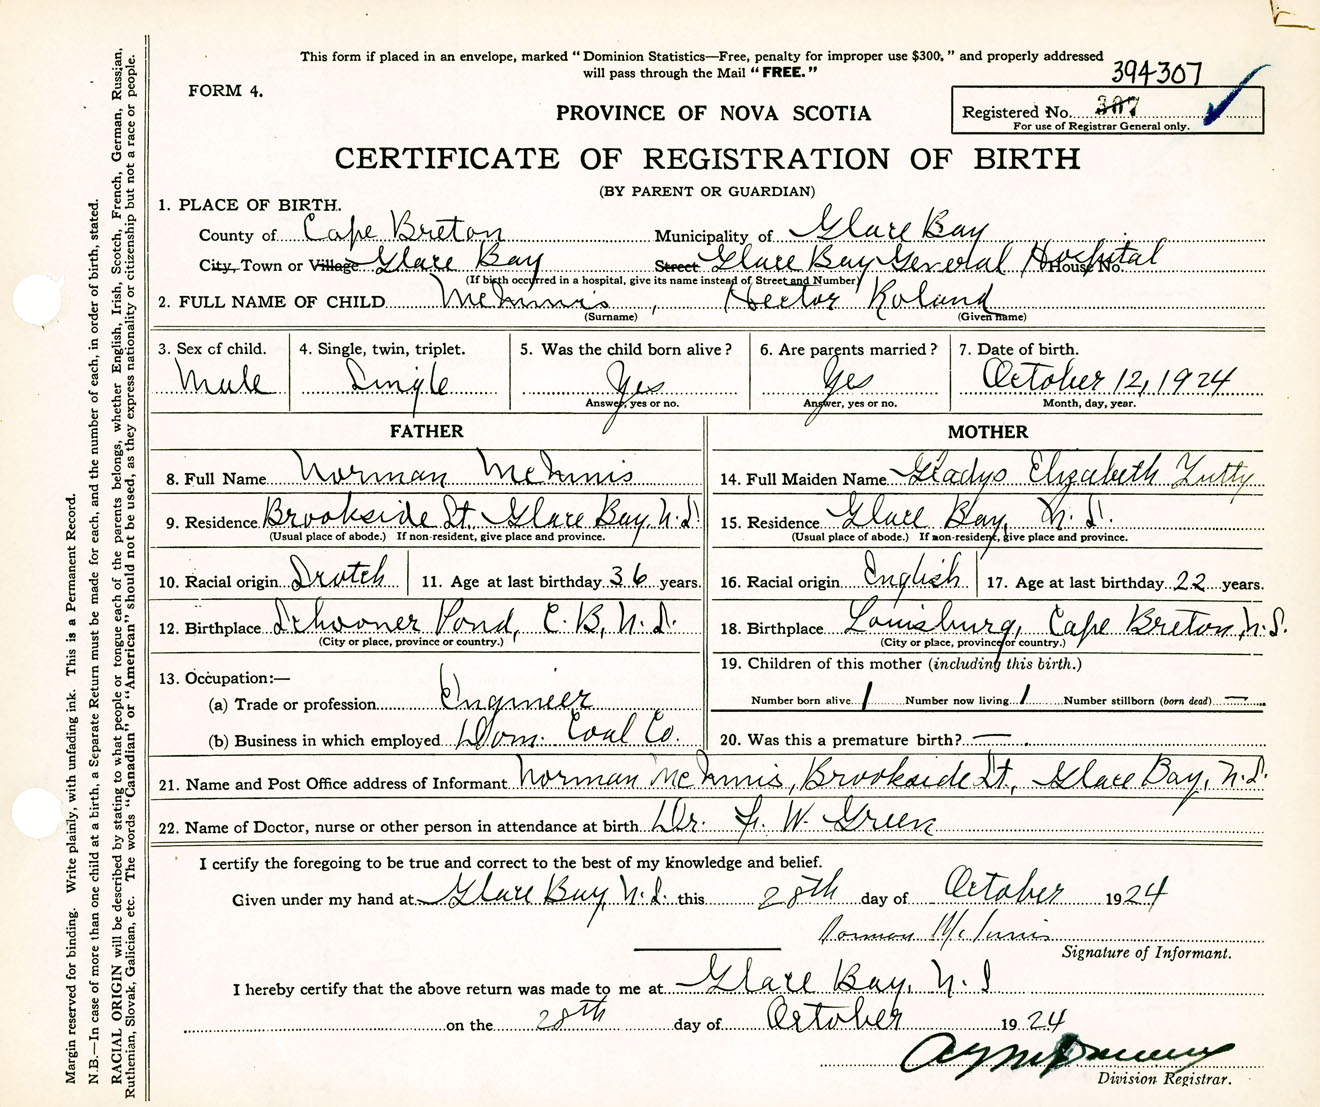 This form if placed in an envelope, marked “Dominion Statistics—Free, penalty for improper use $300,” and properly addressed
will pass through the Mail “FREE.”
394307
FORM 4.
PROVINCE OF NOVA SCOTIA
Registered No. 307
For use of Registrar General only.
CERTIFICATE OF REGISTRATION OF BIRTH
(BY PARENT OR GUARDIAN)
1. PLACE OF BIRTH.
County of Cape Breton Municipality of Glace Bay
City, Town or Village Glace Bay Street Glace Bay General Hospital House No.
(If birth occurred in a hospital, give its name instead of Street and Number)
2. FULL NAME OF CHILD McInnis, Hector Roland
(Surname) (Given name)
3. Sex of child. 4. Single, twin, triplet. 5. Was the child born alive? 6. Are parents married? 7. Date of birth.
Male Single Yes Yes October 12, 1924
Answer, yes or no. Answer, yes or no. Month, day, year.
FATHER MOTHER
8. Full Name Norman McInnis 14. Full Maiden Name Gladys Elizabeth Tutty
9. Residence Brookside St. Glace Bay, N.S. 15. Residence Glace Bay, N.S.
(Usual place of abode.) If non-resident, give place and province. (Usual place of abode.) If non-resident, give place and province.
10. Racial origin Scotch 11. Age at last birthday 36 years. 16. Racial origin English 17. Age at last birthday 22 years.
12. Birthplace Schooner Pond, C.B, N.S. 18. Birthplace Louisburg, Cape Breton, N.S.
(City or place, province or country.) (City or place, province or country.)
13. Occupation:— 19. Children of this mother (including this birth.)
(a) Trade or profession Engineer Number born alive 1 Number now living 1 Number stillborn (born dead) —
(b) Business in which employed Dom. Coal Co. 20. Was this a premature birth? —
21. Name and Post Office address of Informant Norman McInnis, Brookside St., Glace Bay, N.S.
22. Name of Doctor, nurse or other person in attendance at birth Dr. F. W. Green
I certify the foregoing to be true and correct to the best of my knowledge and belief.
Given under my hand at Glace Bay, N.S. this 28th day of October 1924
Norman McInnis
Signature of Informant.
I hereby certify that the above return was made to me at Glace Bay, N.S
on the 28th day of October 1924
Division Registrar.
Margin reserved for binding. Write plainly, with unfading ink. This is a Permanent Record.
N.B.—In case of more than one child at a birth, a Separate Return must be made for each, and the number of each, in order of birth, stated.
RACIAL ORIGIN will be described by stating to what people or tongue each of the parents belongs, whether English, Irish, Scotch, French, German, Russian,
Ruthenian, Slovak, Galician, etc. The words “Canadian” or “American” should not be used, as they express nationality or citizenship but not a race or people.